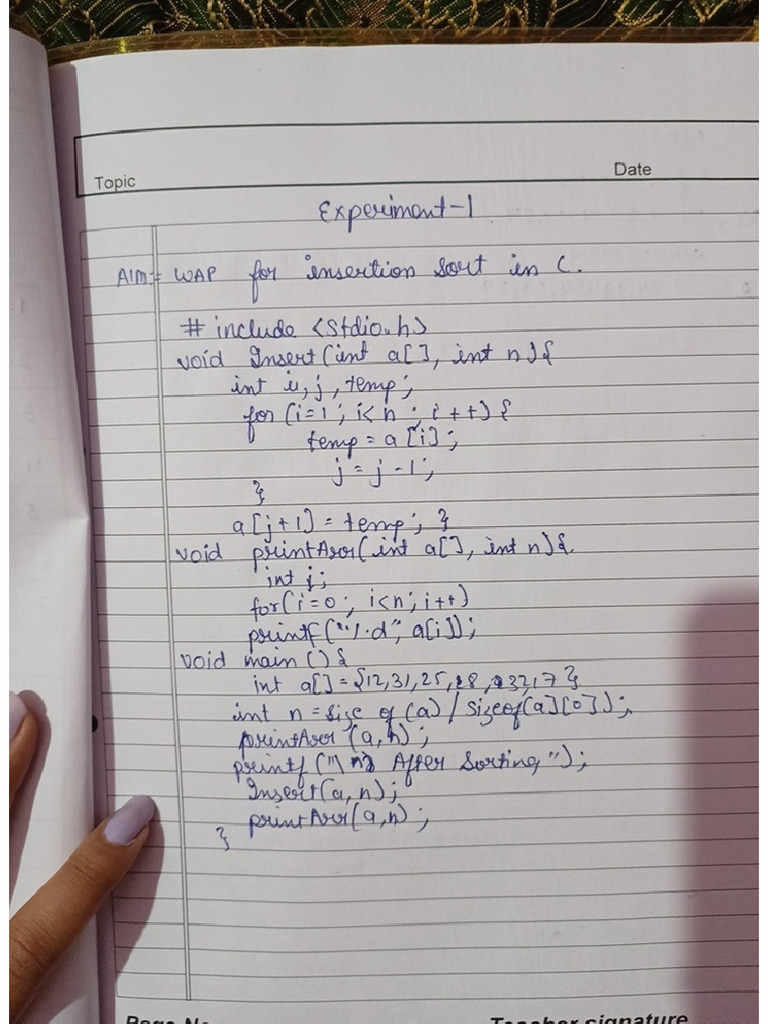 Topic
Date
Experiment-1
AIM:- WAP for insertion sort in C.
# include <stdio.h>
void Insert(int a[], int n){
int i, j, temp;
for (i=1; i<n; i++) {
temp = a[i];
j = j-1;
}
a[j+1] = temp; }
void printArr(int a[], int n){
int j;
for(i=0; i<n; i++)
printf("%d", a[i]);
void main () {
int a[] = {12, 31, 25, 8, 32, 17 }
int n = size of (a) / sizeof(a][0]);
printArr (a, n);
printf ("\n After Sorting");
Insert(a, n);
printArr(a, n);
}
Teacher signature